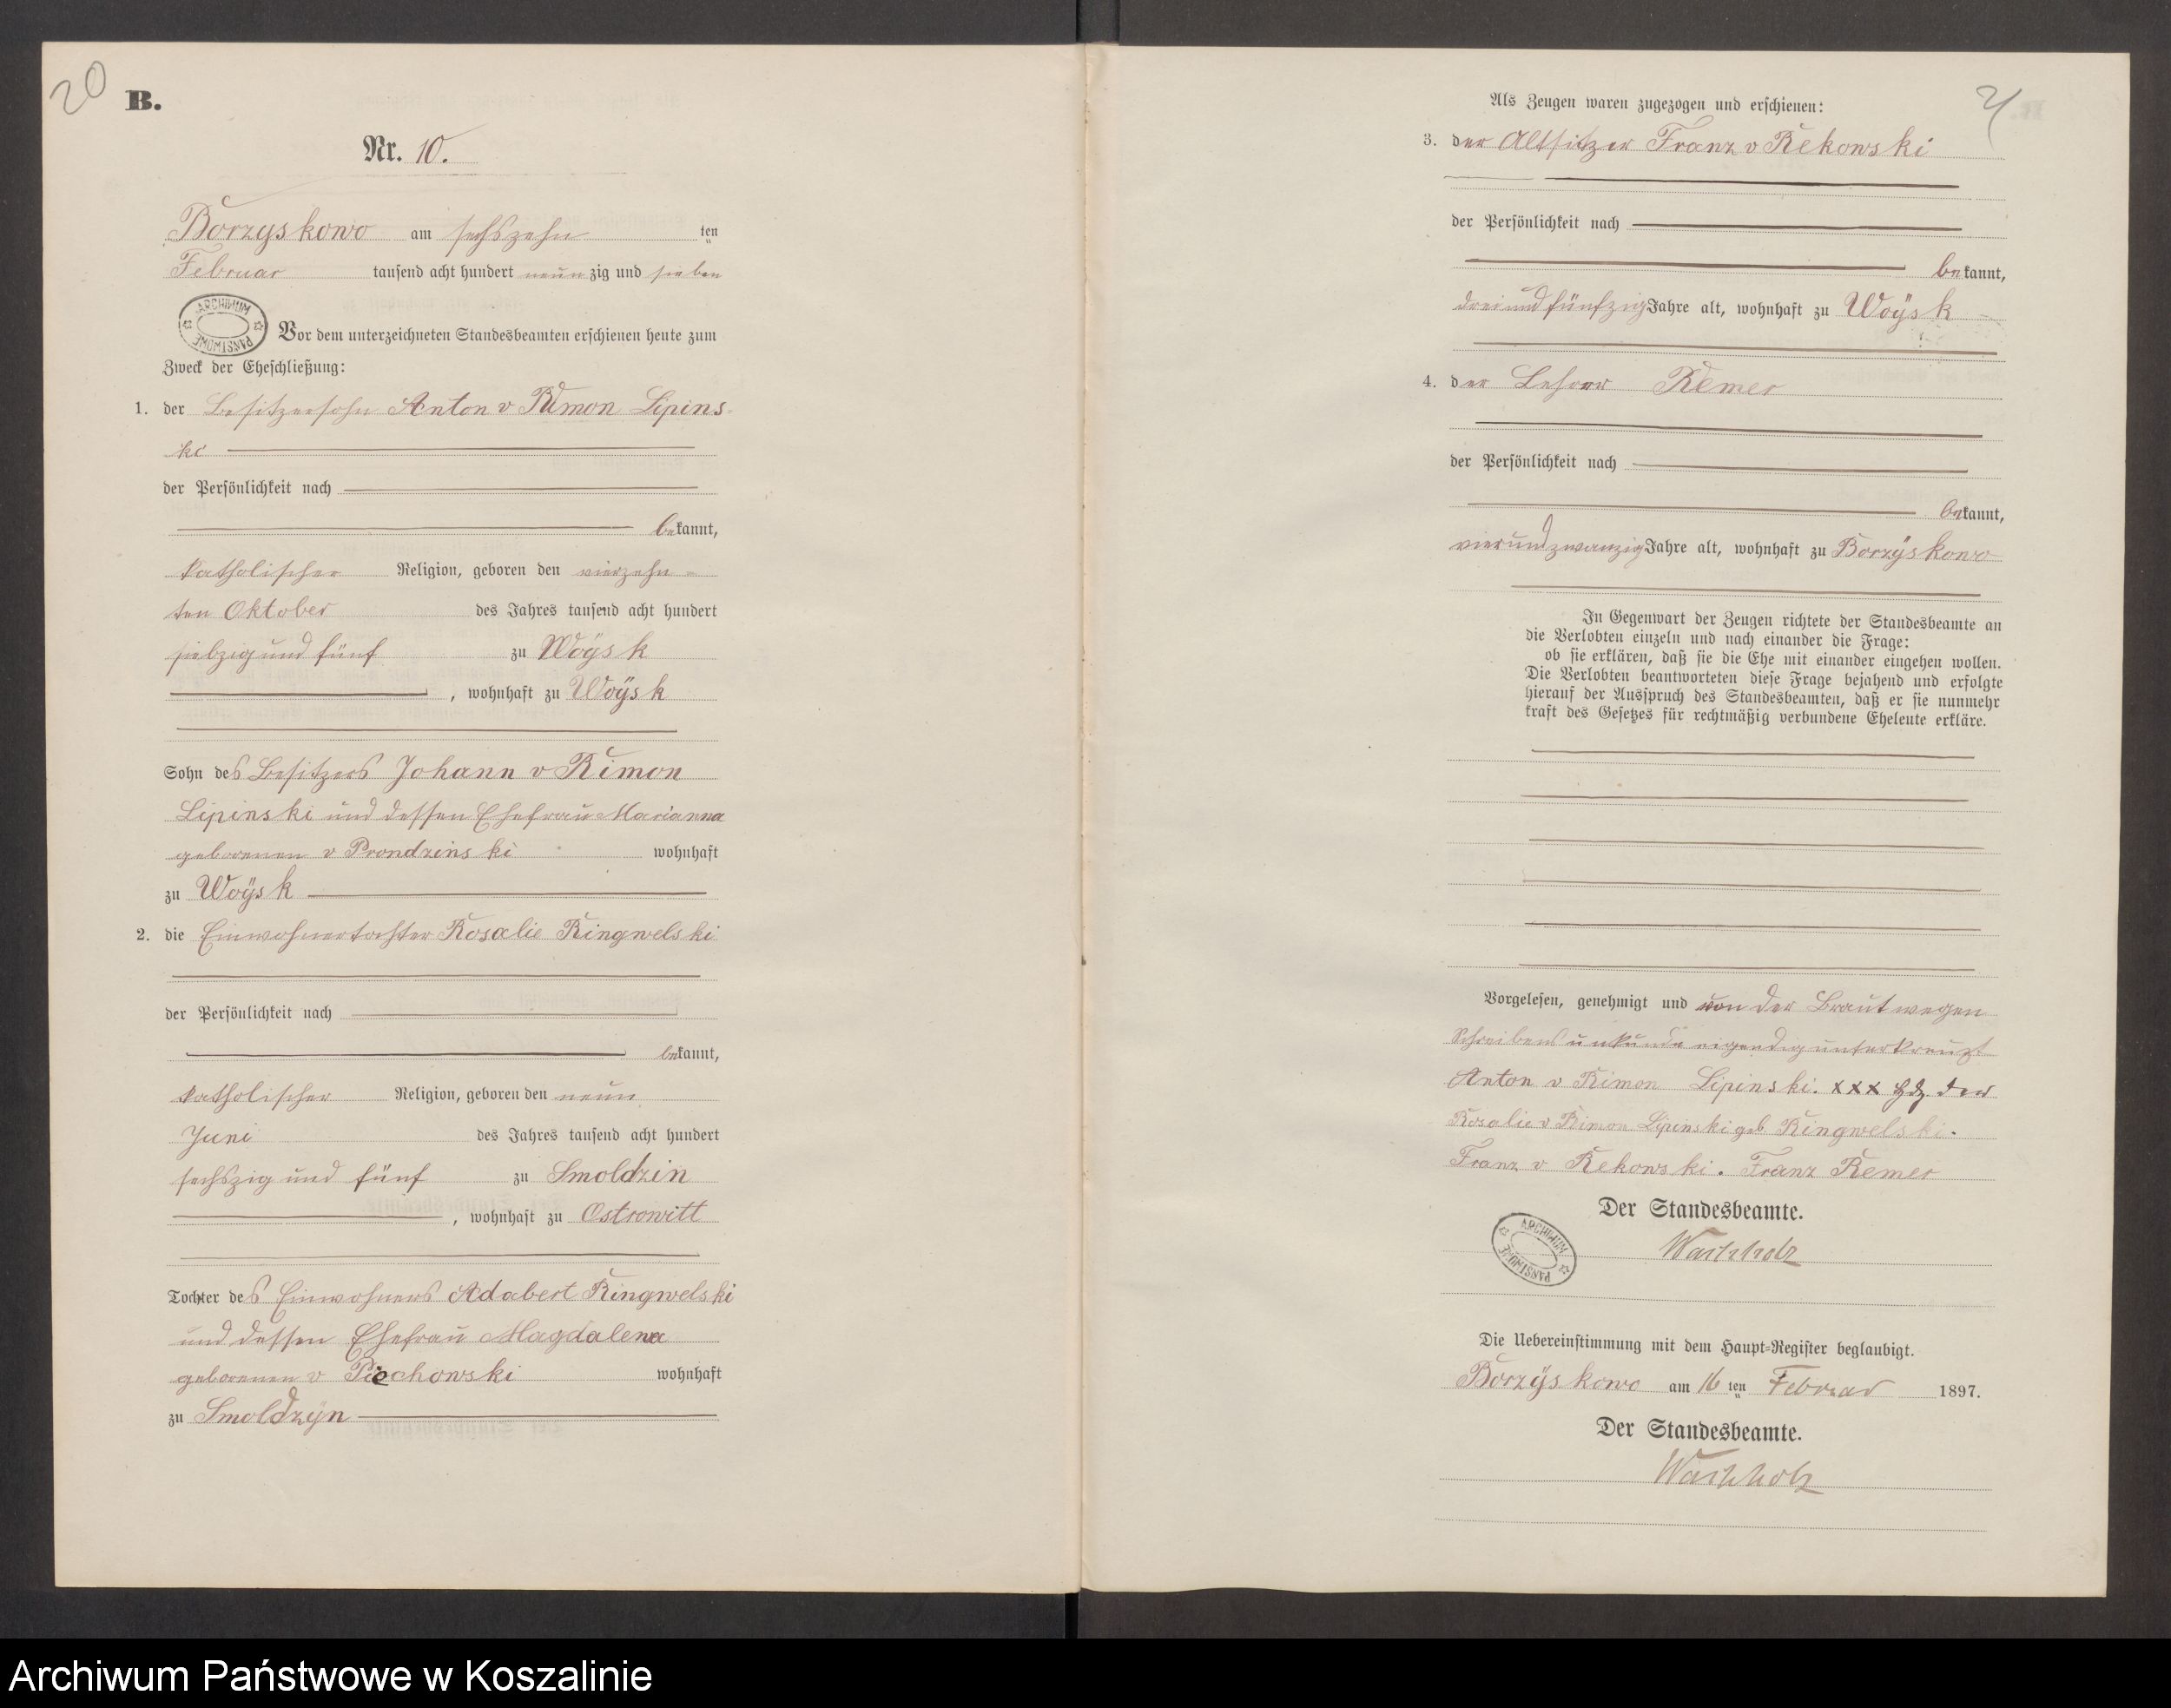 20
B.
Nr. 10.
Borzyskowo am sechszehn ten
Februar tausend acht hundert neunzig und sieben
ARCHIWUM PAŃSTWOWE
Vor dem unterzeichneten Standesbeamten erschienen heute zum
Zweck der Eheschließung:
1. der Besitzersohn Anton v Rimon Lipins-
ki
der Persönlichkeit nach
bekannt,
katholischer Religion, geboren den vierzehn-
ten Oktober des Jahres tausend acht hundert
siebzig und fünf zu Woÿsk
, wohnhaft zu Woÿsk
Sohn des Besitzers Johann v Rimon
Lipinski und dessen Ehefrau Marianna
geborenen v Prondzinski wohnhaft
zu Woÿsk
2. die Einwohnertochter Rosalie Ringwelski
der Persönlichkeit nach
bekannt,
katholischer Religion, geboren den neun
Juni des Jahres tausend acht hundert
sechszig und fünf zu Smoldzin
, wohnhaft zu Ostrowitt
Tochter des Einwohners Adabert Ringwelski
und dessen Ehefrau Magdalena
geborenen v Piechowski wohnhaft
zu Smoldzÿn
Als Zeugen waren zugezogen und erschienen:
3. der Altsitzer Franz v Rekowski
der Persönlichkeit nach
bekannt,
dreiundfünfzig Jahre alt, wohnhaft zu Woÿsk
4. der Lehrer Remer
der Persönlichkeit nach
bekannt,
vierundzwanzig Jahre alt, wohnhaft zu Borzÿskowo
In Gegenwart der Zeugen richtete der Standesbeamte an
die Verlobten einzeln und nach einander die Frage:
ob sie erklären, daß sie die Ehe mit einander eingehen wollen.
Die Verlobten beantworteten diese Frage bejahend und erfolgte
hierauf der Ausspruch des Standesbeamten, daß er sie nunmehr
kraft des Gesetzes für rechtmäßig verbundene Eheleute erkläre.
Vorgelesen, genehmigt und von der Braut wegen
Schreibensunkunde eigendig unterkreuzt
Anton v Rimon Lipinski. xxx Hdz. der
Rosalie v Rimon Lipinski geb Ringwelski.
Franz v Rekowski. Franz Remer
Der Standesbeamte.
Wachholz
ARCHIWUM PAŃSTWOWE
Die Uebereinstimmung mit dem Haupt-Register beglaubigt.
Borzÿskowo am 16 ten Februar 1897.
Der Standesbeamte.
Wachholz
Archiwum Państwowe w Koszalinie